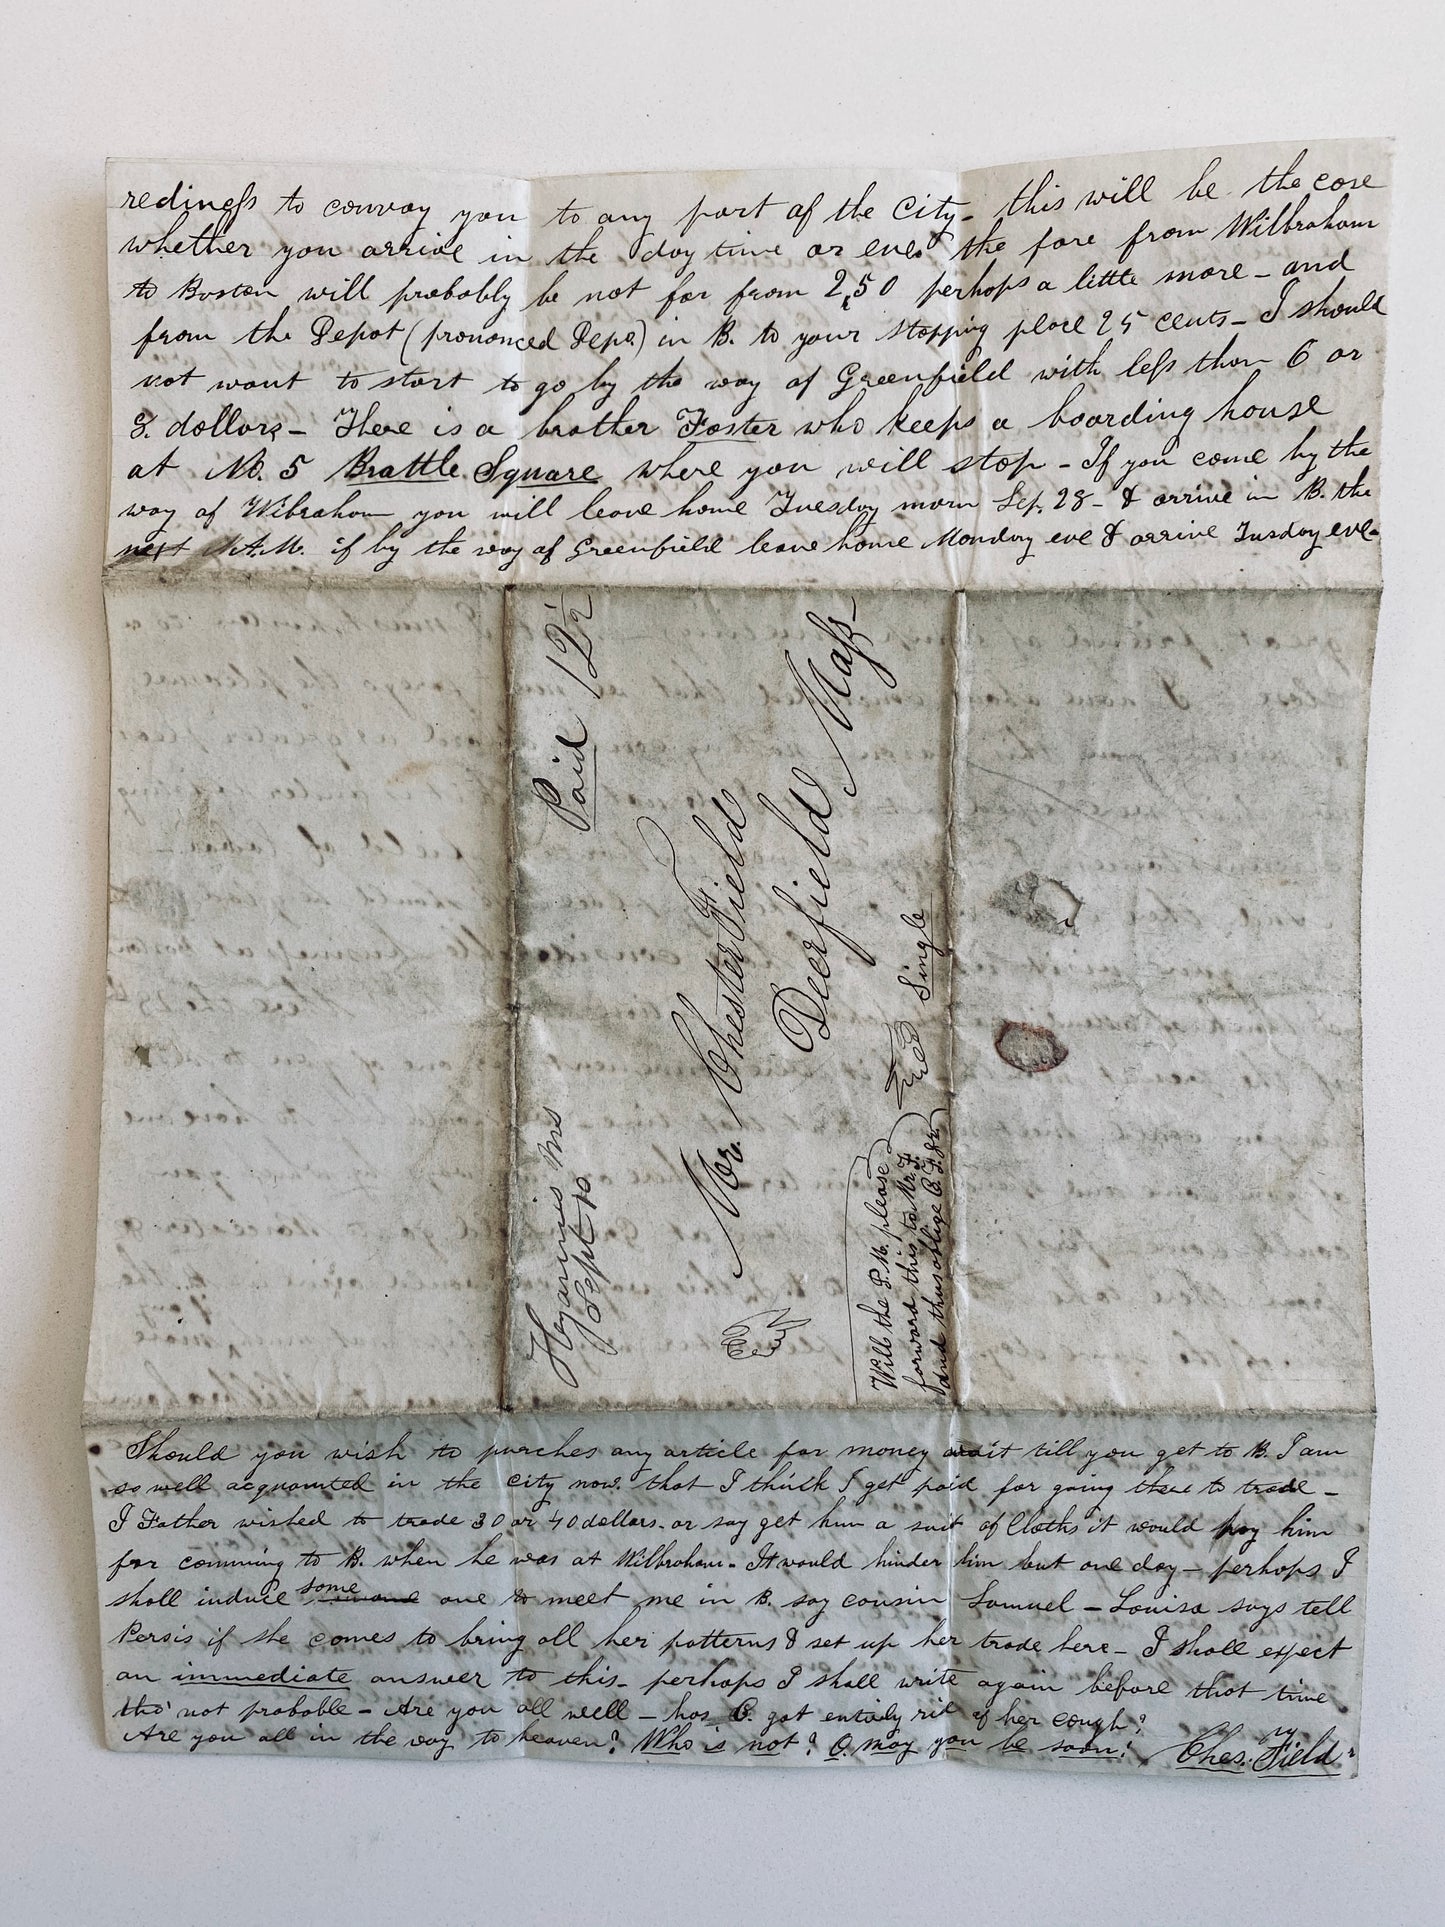 rediness to convay you to any part of the City - this will be the case
whether you arrive in the day time or eve. the fare from Wilbraham
to Boston will probably be not far from 2,50 perhaps a little more - and
from the Depot (pronounced Depo.) in B. to your stopping place 25 cents - I should
not want to start to go by the way of Greenfield with less than 6 or
8. dollars - There is a brother Foster who keeps a boarding house
at No. 5 Brattle Square where you will stop - If you come by the
way of Wibraham you will leave home Tuesday morn Sep. 28 - & arrive in B. the
next A.M. if by the way of Greenfield leave home Monday eve & arrive Tusday eve -
Paid 12½
Hyannis Ms
Sept 10
Mr. Chester Field
Deerfield
Mass
Single
Will the P.M. please
forward this to Mr F.
and thus oblige C.F. Jr.
Should you wish to purches any article for money wait till you get to B. I am
so well acquainted in the city now. that I think I get paid for going there to trade -
I Father wished to trade 30 or 40 dollars - or say get him a suit of Cloths it would pay him
for comming to B. when he was at Wilbraham - It would hinder him but one day - perhaps I
shall induce some one to meet me in B. say cousin Samuel - Louisa says tell
Persis if she comes to bring all her patterns & set up her trade here - I shall expect
an immediate answer to this - perhaps I shall write again before that time
tho' not probable - Are you all well - has C. got entirly rid of her cough?
Are you all in the way to heaven? Who is not? O. may you be soon! Ches. Field Jr